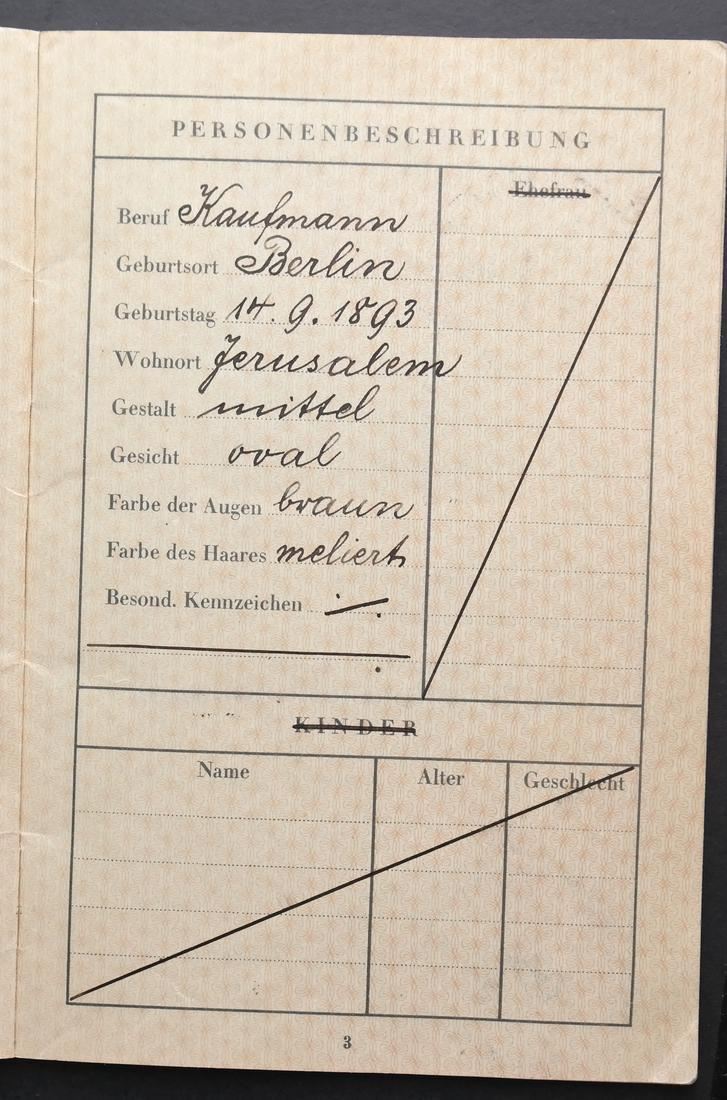 PERSONENBESCHREIBUNG
Ehefrau
Beruf Kaufmann
Geburtsort Berlin
Geburtstag 14. 9. 1893
Wohnort Jerusalem
Gestalt mittel
Gesicht oval
Farbe der Augen braun
Farbe des Haares meliert
Besond. Kennzeichen ÷
KINDER
Name Alter Geschlecht
3